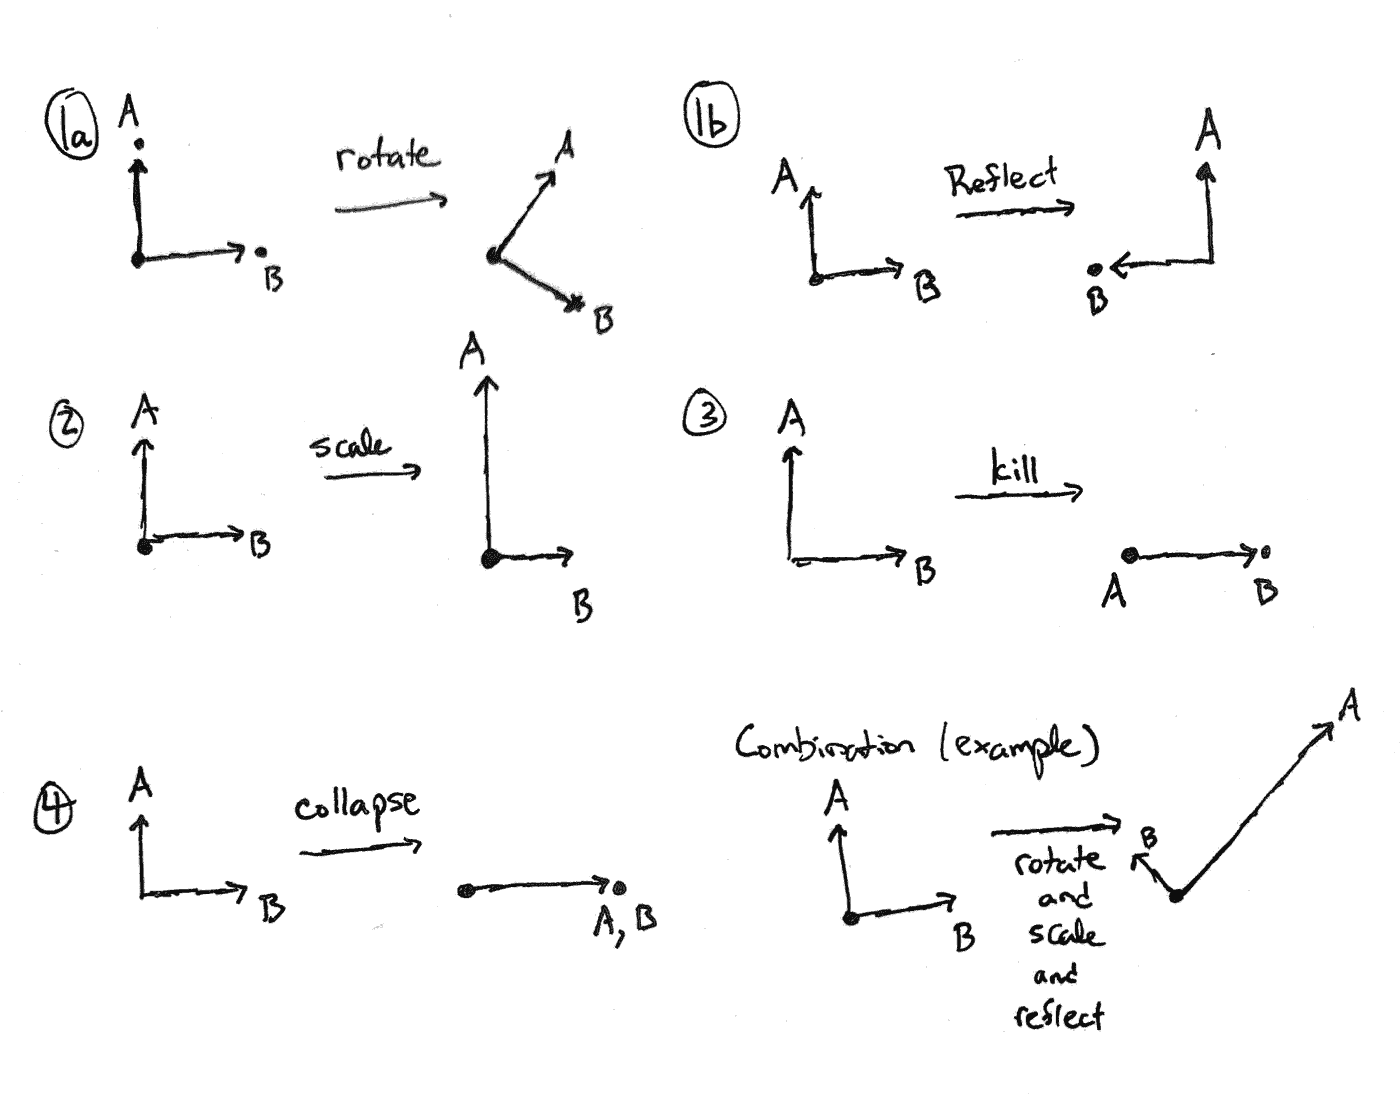 1a
A
B
rotate
A
B
1b
A
B
Reflect
A
B
2
A
B
scale
A
B
3
A
B
kill
A
B
4
A
B
collapse
A, B
Combination (example)
A
B
rotate
and
scale
and
reflect
B
A